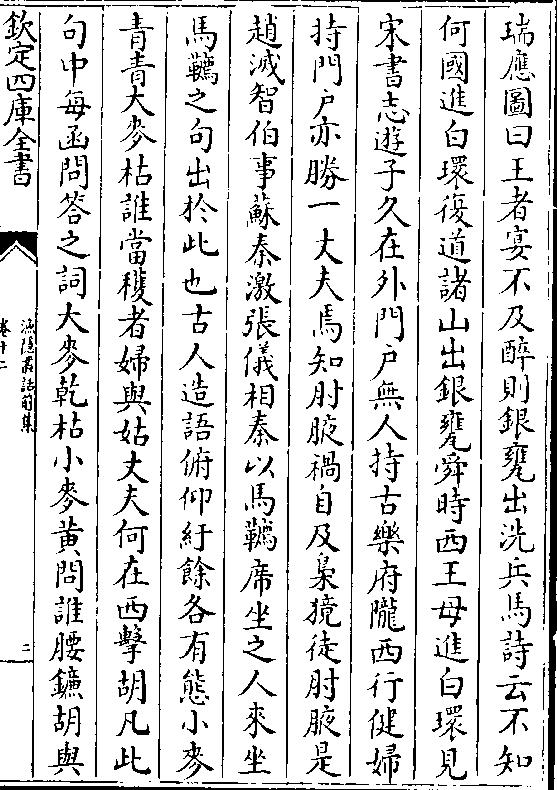 瑞應圖曰王者宴不及醉則銀甕出洗兵馬詩云不知
何國進白環復道諸山出銀甕舜時西王母進白環見
宋書志遊子久在外門户無人持古樂府隴西行健婦
持門户亦勝一丈夫焉知肘腋禍自及梟獍徒肘腋是
趙滅智伯事蘇秦激張儀相秦以馬韉席坐之人來坐
馬韉之句出於此也古人造語俯仰紆餘各有態小麥
青青大麥枯誰當穫者婦與姑丈夫何在西擊胡凡此
句中每函問答之詞大麥乾枯小麥黄問誰腰鐮胡與
欽定四庫全書
漁隱叢話前集
卷十二
二